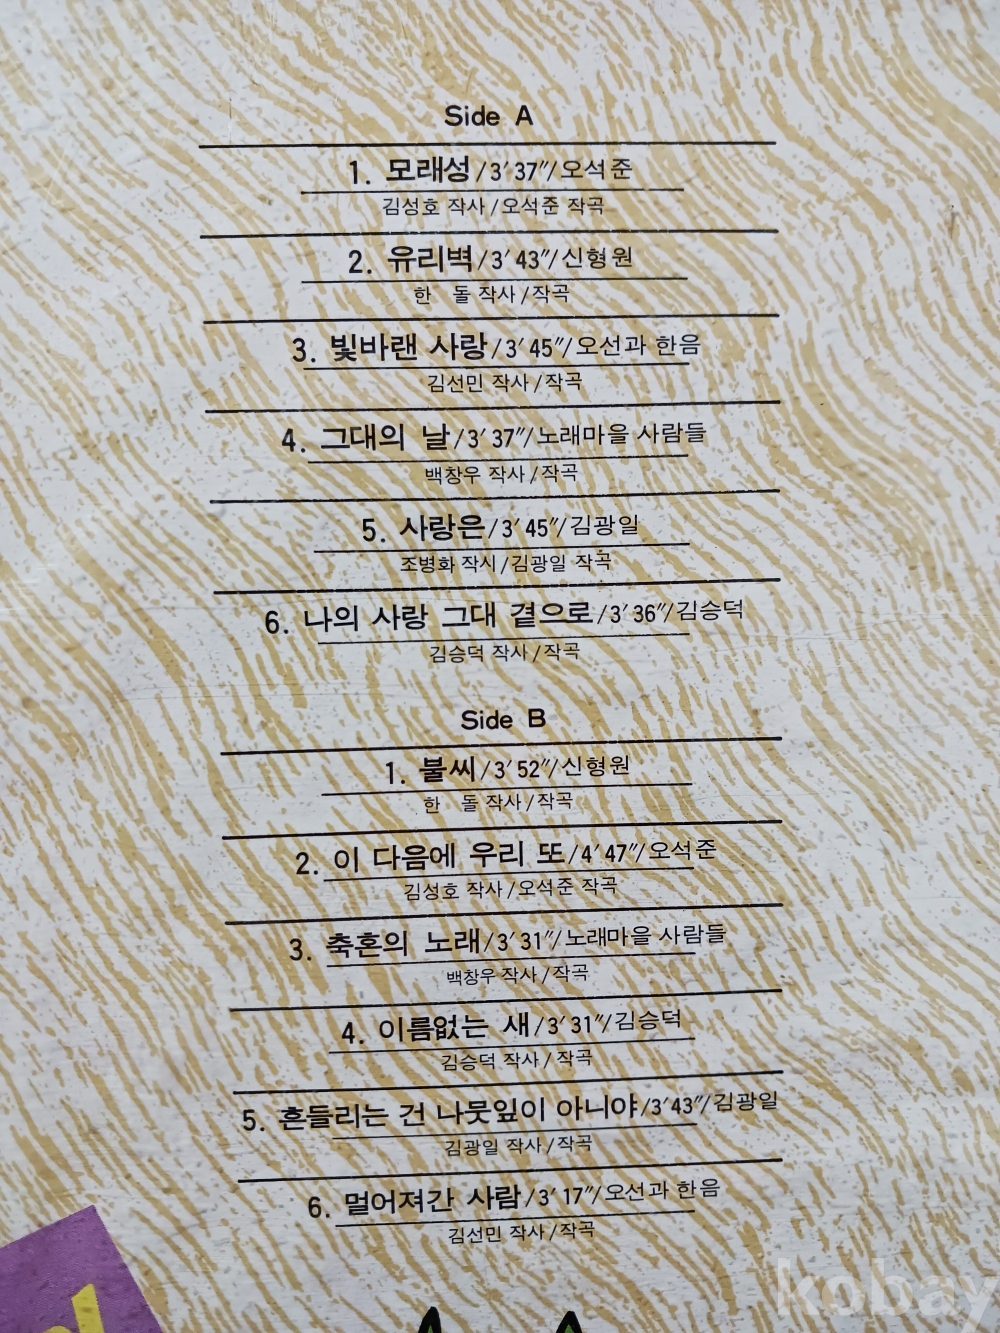 Side A
1. 모래성/3′37″/오석준
김성호 작사/오석준 작곡
2. 유리벽/3′43″/신형원
한 돌 작사/작곡
3. 빛바랜 사랑/3′45″/오선과 한음
김선민 작사/작곡
4. 그대의 날/3′37″/노래마을 사람들
백창우 작사/작곡
5. 사랑은/3′45″/김광일
조병화 작시/김광일 작곡
6. 나의 사랑 그대 곁으로/3′36″/김승덕
김승덕 작사/작곡
Side B
1. 불씨/3′52″/신형원
한 돌 작사/작곡
2. 이 다음에 우리 또/4′47″/오석준
김성호 작사/오석준 작곡
3. 축혼의 노래/3′31″/노래마을 사람들
백창우 작사/작곡
4. 이름없는 새/3′31″/김승덕
김승덕 작사/작곡
5. 흔들리는 건 나뭇잎이 아니야/3′43″/김광일
김광일 작사/작곡
6. 멀어져간 사람/3′17″/오선과 한음
김선민 작사/작곡
kobay